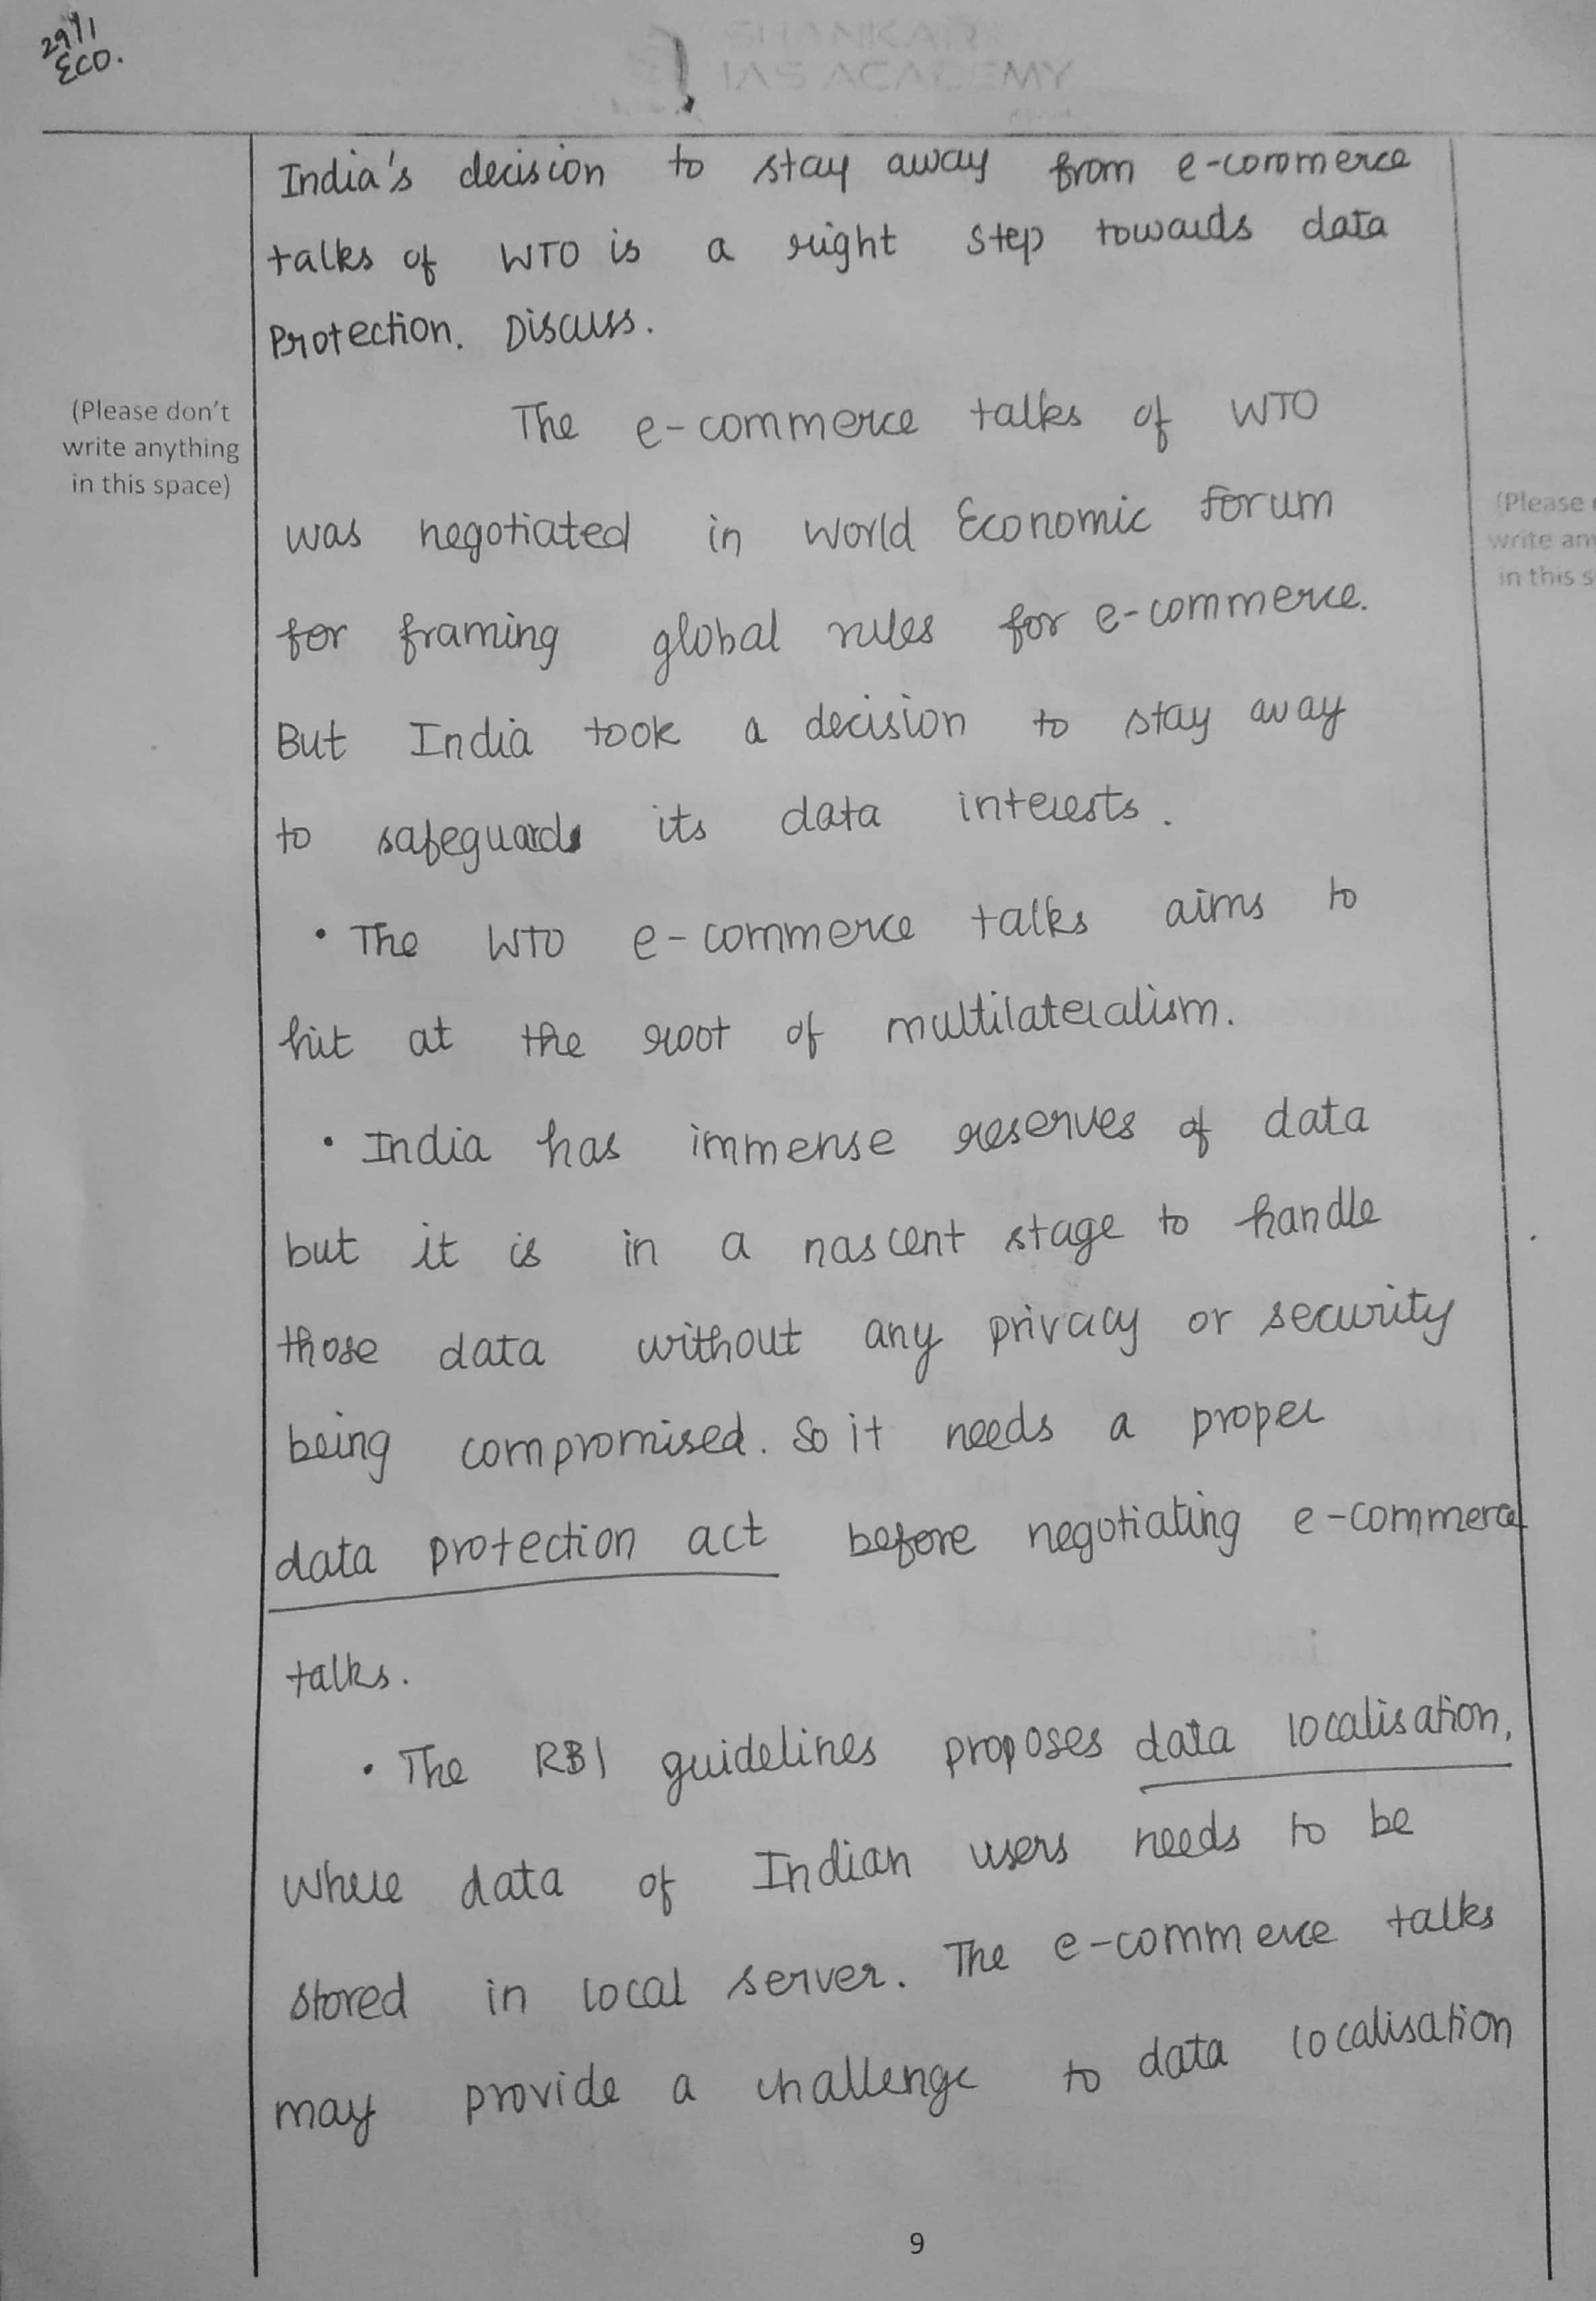 29/1
ECO.
SHANKAR
IAS ACADEMY
India's decision to stay away from e-commerce
talks of WTO is a right step towards data
Protection. Discuss.
(Please don't
write anything
in this space)
The e-commerce talks of WTO
was negotiated in World Economic Forum
for framing global rules for e-commerce.
But India took a decision to stay away
to safeguards its data interests.
• The WTO e-commerce talks aims to
hit at the root of multilateralism.
• India has immense reserves of data
but it is in a nascent stage to handle
those data without any privacy or security
being compromised. So it needs a proper
data protection act before negotiating e-commerce
talks.
• The RBI guidelines proposes data localisation,
where data of Indian users needs to be
stored in local server. The e-commerce talks
may provide a challenge to data localisation
(Please
write
in this
9